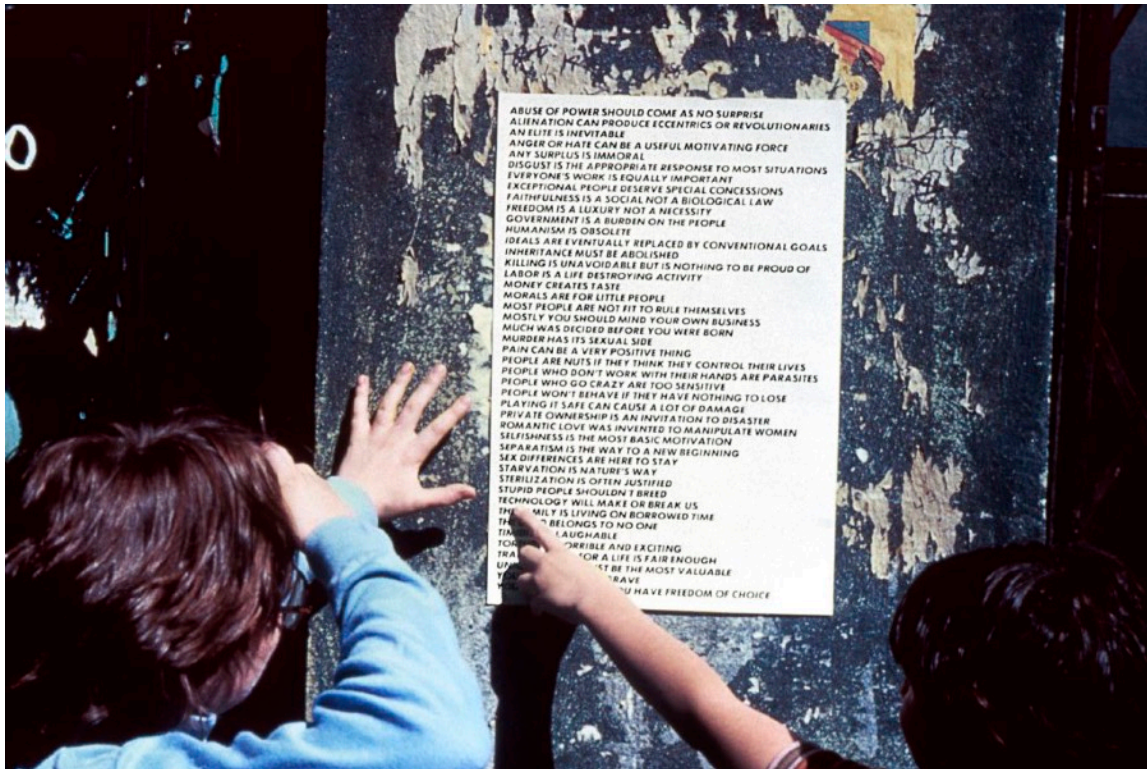 ABUSE OF POWER SHOULD COME AS NO SURPRISE
ALIENATION CAN PRODUCE ECCENTRICS OR REVOLUTIONARIES
AN ELITE IS INEVITABLE
ANGER OR HATE CAN BE A USEFUL MOTIVATING FORCE
ANY SURPLUS IS IMMORAL
DISGUST IS THE APPROPRIATE RESPONSE TO MOST SITUATIONS
EVERYONE'S WORK IS EQUALLY IMPORTANT
EXCEPTIONAL PEOPLE DESERVE SPECIAL CONCESSIONS
FAITHFULNESS IS A SOCIAL NOT A BIOLOGICAL LAW
FREEDOM IS A LUXURY NOT A NECESSITY
GOVERNMENT IS A BURDEN ON THE PEOPLE
HUMANISM IS OBSOLETE
IDEALS ARE EVENTUALLY REPLACED BY CONVENTIONAL GOALS
INHERITANCE MUST BE ABOLISHED
KILLING IS UNAVOIDABLE BUT IS NOTHING TO BE PROUD OF
LABOR IS A LIFE DESTROYING ACTIVITY
MONEY CREATES TASTE
MORALS ARE FOR LITTLE PEOPLE
MOST PEOPLE ARE NOT FIT TO RULE THEMSELVES
MOSTLY YOU SHOULD MIND YOUR OWN BUSINESS
MUCH WAS DECIDED BEFORE YOU WERE BORN
MURDER HAS ITS SEXUAL SIDE
PAIN CAN BE A VERY POSITIVE THING
PEOPLE ARE NUTS IF THEY THINK THEY CONTROL THEIR LIVES
PEOPLE WHO DON'T WORK WITH THEIR HANDS ARE PARASITES
PEOPLE WHO GO CRAZY ARE TOO SENSITIVE
PEOPLE WON'T BEHAVE IF THEY HAVE NOTHING TO LOSE
PLAYING IT SAFE CAN CAUSE A LOT OF DAMAGE
PRIVATE OWNERSHIP IS AN INVITATION TO DISASTER
ROMANTIC LOVE WAS INVENTED TO MANIPULATE WOMEN
SELFISHNESS IS THE MOST BASIC MOTIVATION
SEPARATISM IS THE WAY TO A NEW BEGINNING
SEX DIFFERENCES ARE HERE TO STAY
STARVATION IS NATURE'S WAY
STERILIZATION IS OFTEN JUSTIFIED
STUPID PEOPLE SHOULDN'T BREED
TECHNOLOGY WILL MAKE OR BREAK US
THE FAMILY IS LIVING ON BORROWED TIME
BELONGS TO NO ONE
LAUGHABLE
HORRIBLE AND EXCITING
FOR A LIFE IS FAIR ENOUGH
MUST BE THE MOST VALUABLE
HAVE FREEDOM OF CHOICE